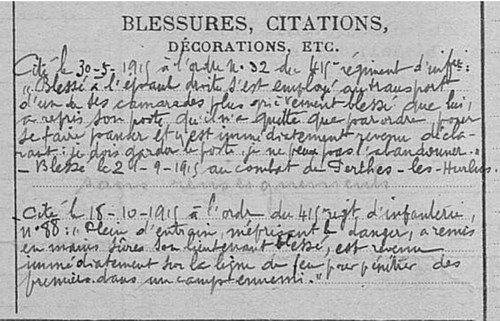 BLESSURES, CITATIONS,
DÉCORATIONS, ETC.
Cité le 30-5-1915 à l'ordre n° 32 du 415e régiment d'infie:
"Blessé à l'épaule droite, s'est employé au transport
d'un de ses camarades plus grièvement blessé que lui,
a repris son poste, qu'il n'a quitté que par ordre, pour
se faire panser et y est immédiatement revenu décla-
rant: je dois garder le poste, je ne peux pas l'abandonner."
- Blessé le 29-9-1915 au combat de Perthes-les-Hurlus.
sans renseignements
Cité le 18-10-1915 à l'ordre du 415 regt d'infanterie,
n° 88: "Plein d'entrain, méprisant le danger, a remis
en mains sûres son lieutenant blessé, est revenu
immédiatement sur la ligne de feu pour pénétrer des
premiers dans un camp ennemi."